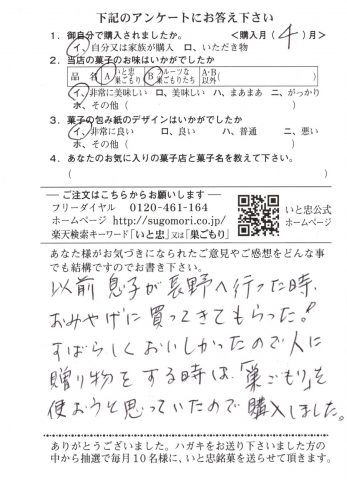 下記のアンケートにお答え下さい
1. 御自分で購入されましたか。 <購入月( 4 )月>
イ、自分又は家族が購入 ロ、いただき物
2. 当店の菓子のお味はいかがでしたか
品 名 A いと忠巣ごもり B フルーツな巣ごもりたち A・B以外( )
イ、非常に美味しい ロ、美味しい ハ、まぁまぁ ニ、がっかり
ホ、その他( )
3. 菓子の包み紙のデザインはいかがでしたか
イ、非常に良い ロ、良い ハ、普通 ニ、悪い
ホ、その他( )
4. あなたのお気に入りの菓子店と菓子名を教えて下さい。
( )
ご注文はこちらからお願いします
フリーダイヤル 0120-461-164
ホームページ http://sugomori.co.jp/
楽天検索キーワード「いと忠」又は「巣ごもり」
いと忠公式
ホームページ
あなた様がお気づきになられたご意見やご感想をどんな事
でも結構ですのでお書き下さい。
以前息子が長野へ行った時、
おみやげに買ってきてもらった。
すばらしくおいしかったので人に
贈り物をする時は、「巣ごもり」を
使おうと思っていたので購入しました。
ありがとうございました。ハガキをお送り下さいました方の
中から抽選で毎月10名様に、いと忠銘菓を送らせて頂きます。